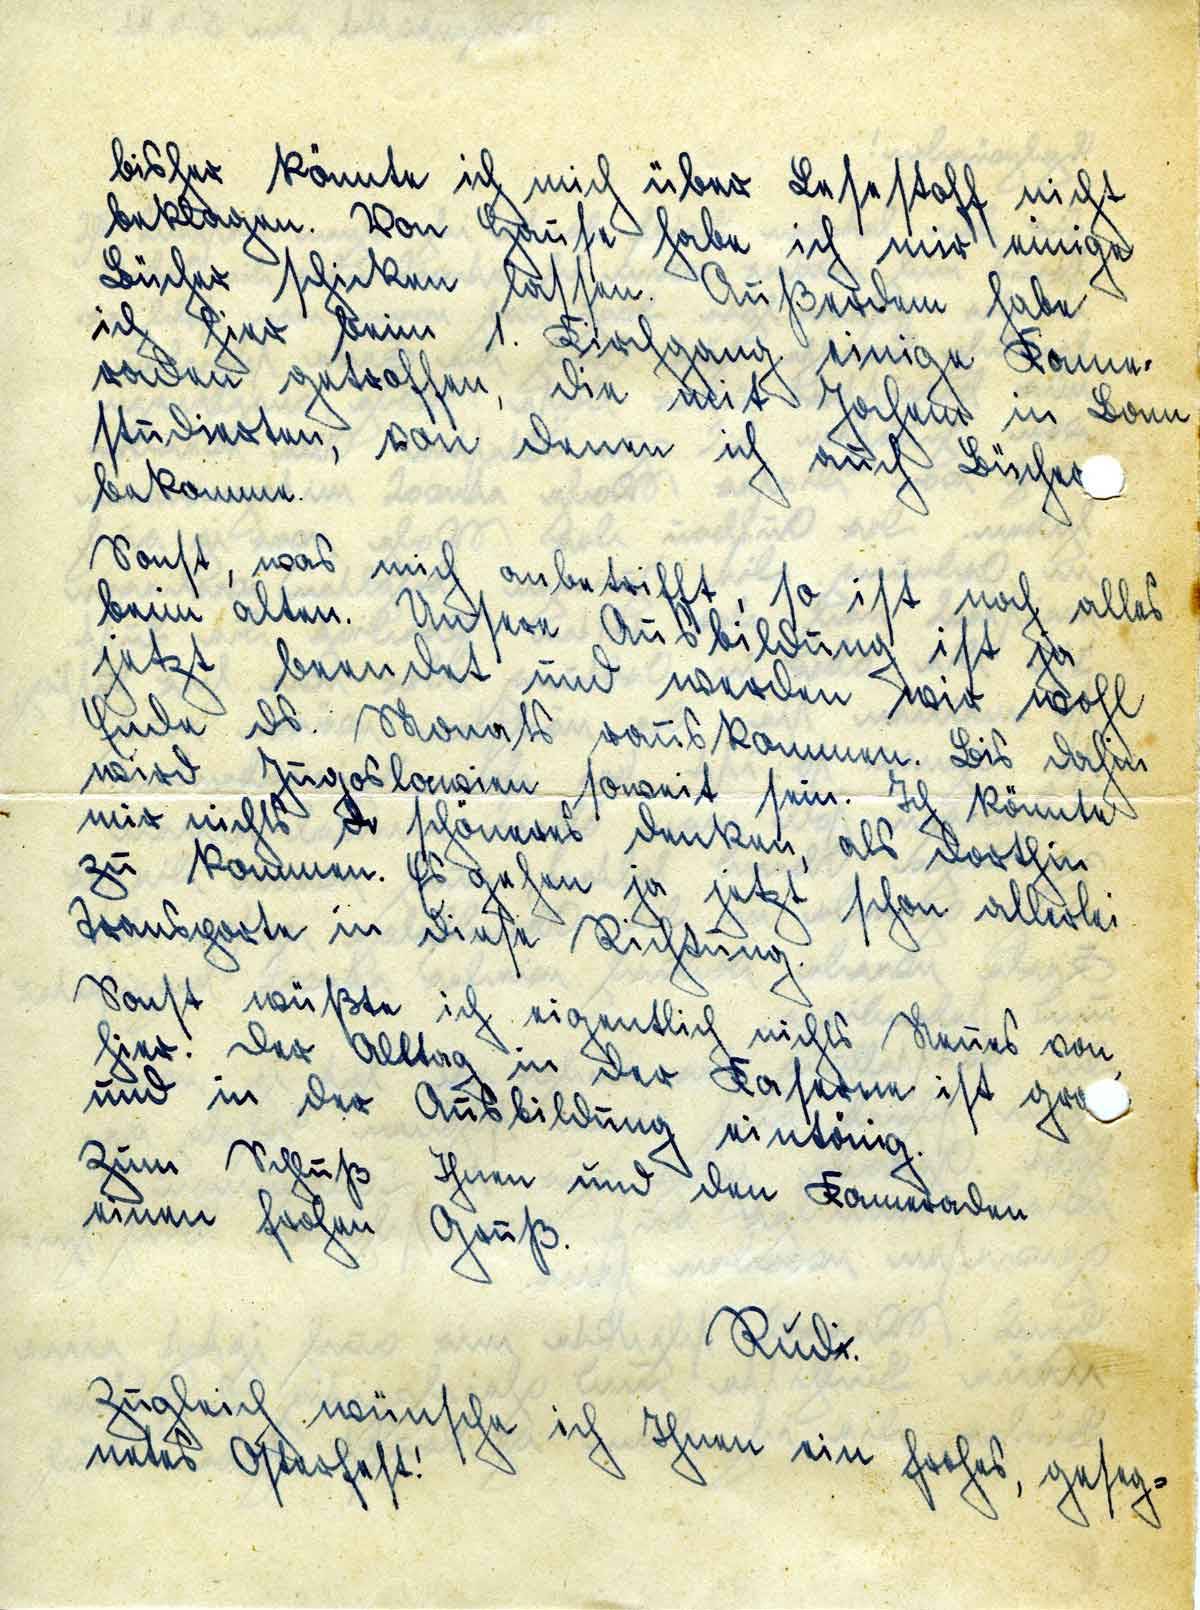 bisher könnte ich mich über Lesestoff nicht
beklagen. Von Hause habe ich mir einige
Bücher schicken lassen. Außerdem habe
ich hier beim 1. Kirchgang einige Kame-
raden getroffen, die mit Jochem in Bonn
studierten, von denen ich auch Bücher
bekomme.
Sonst, was mich anbetrifft, so ist noch alles
beim alten. Unsere Ausbildung ist ja
jetzt beendet und werden wir wohl
Ende ds. Monats rauskommen. Bis dahin
wird Jugoslawien soweit sein. Ich könnte
mir nichts schöneres denken, als dorthin
zu kommen. Es gehen ja jetzt schon allerlei
Transporte in diese Richtung.
Sonst wüßte ich eigentlich nichts Neues von
hier. Der Alltag in der Kaserne ist
und in der Ausbildung eintönig.
Zum Schluß Ihnen und den Kameraden
einen frohen Gruß.
Rudi.
Zugleich wünsche ich Ihnen ein frohes, geseg=
netes Osterfest!